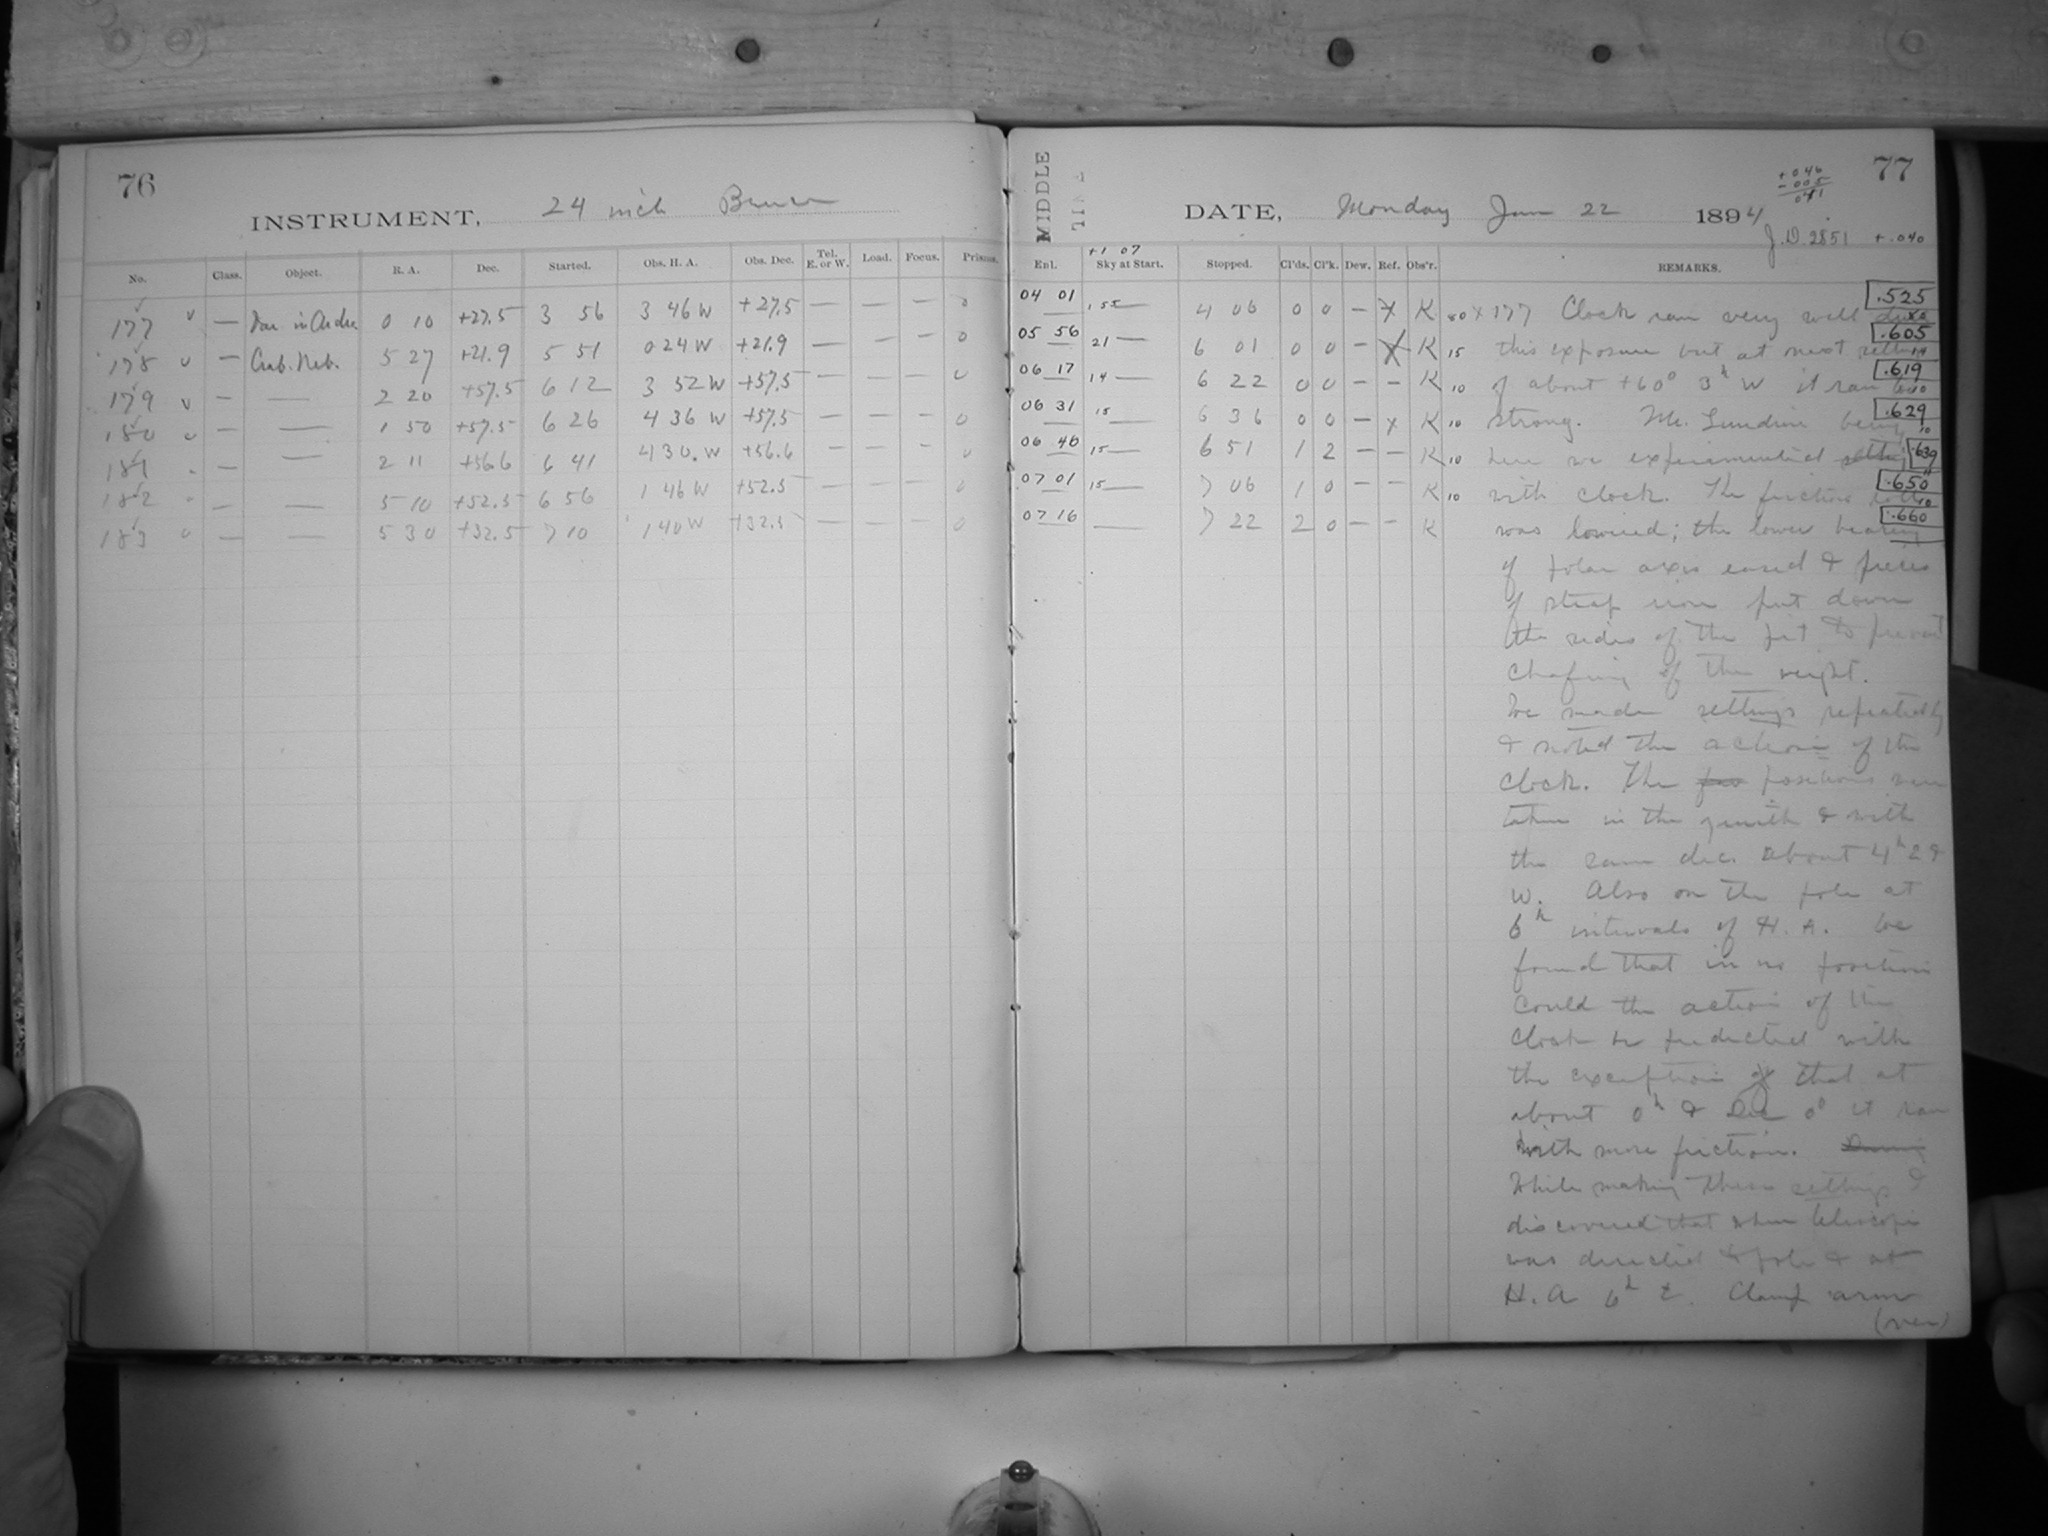 76
INSTRUMENT, 24 inch Bruce
No. Class. Object. R. A. Dec. Started. Obs. H. A. Obs. Dec. Tel. E. or W. Load. Focus. Prisms.
177 v — Var in Andr 0 10 +27.5 3 56 3 46 W +27.5 — — — 0
178 v — Crab. Neb. 5 27 +21.9 5 51 0 24 W +21.9 — — — 0
179 v — — 2 20 +57.5 6 12 3 52 W +57.5 — — — 0
180 v — — 1 50 +57.5 6 26 4 36 W +57.5 — — — 0
181 — — 2 11 +56.6 6 41 4 30. W +56.6 — — — 0
182 — — 5 10 +52.5 6 56 1 46 W +52.5 — — — 0
183 — — 5 30 +32.5 7 10 1 40 W +32.5 — — — 0
77
+046
-005
041
MIDDLE
DATE, Monday Jan 22 1894
J.D. 2851 +.040
+1 07
Enl. Sky at Start. Stopped. Cl'ds. Cl'k. Dew. Ref. Obs'r. REMARKS.
04 01 1 55 — 4 06 0 0 — x K 80 x 177 Clock ran very well .525
05 56 21 — 6 01 0 0 — X K 15 this exposure but at next .605
06 17 14 — 6 22 0 0 — — K 10 of about +60° 3h W it ran .619
06 31 15 — 6 36 0 0 — x K 10 strong. Mr. Lundin being .629
06 46 15 — 6 51 1 2 — — K 10 here we experimented .639
07 01 15 — 7 06 1 0 — — K 10 with clock. The friction .650
07 16 — 7 22 2 0 — — K was lowered; the lower bearing .660
of polar axis eased & pieces
of strap iron put down
the sides of the pit to prevent
chafing of the weight.
We made settings repeatedly
& noted the action of the
clock. The positions were
taken in the zenith & with
the same dec. about 4h
W. Also on the pole at
6h intervals of H. A. We
found that in no position
could the action of the
clock be predicted with
the exception of that at
about 0h & Dec 0° it ran
with more friction. During
While making these settings I
discovered that when telescope
was directed to pole & at
H. A 6h E. Clamp arm
(over)